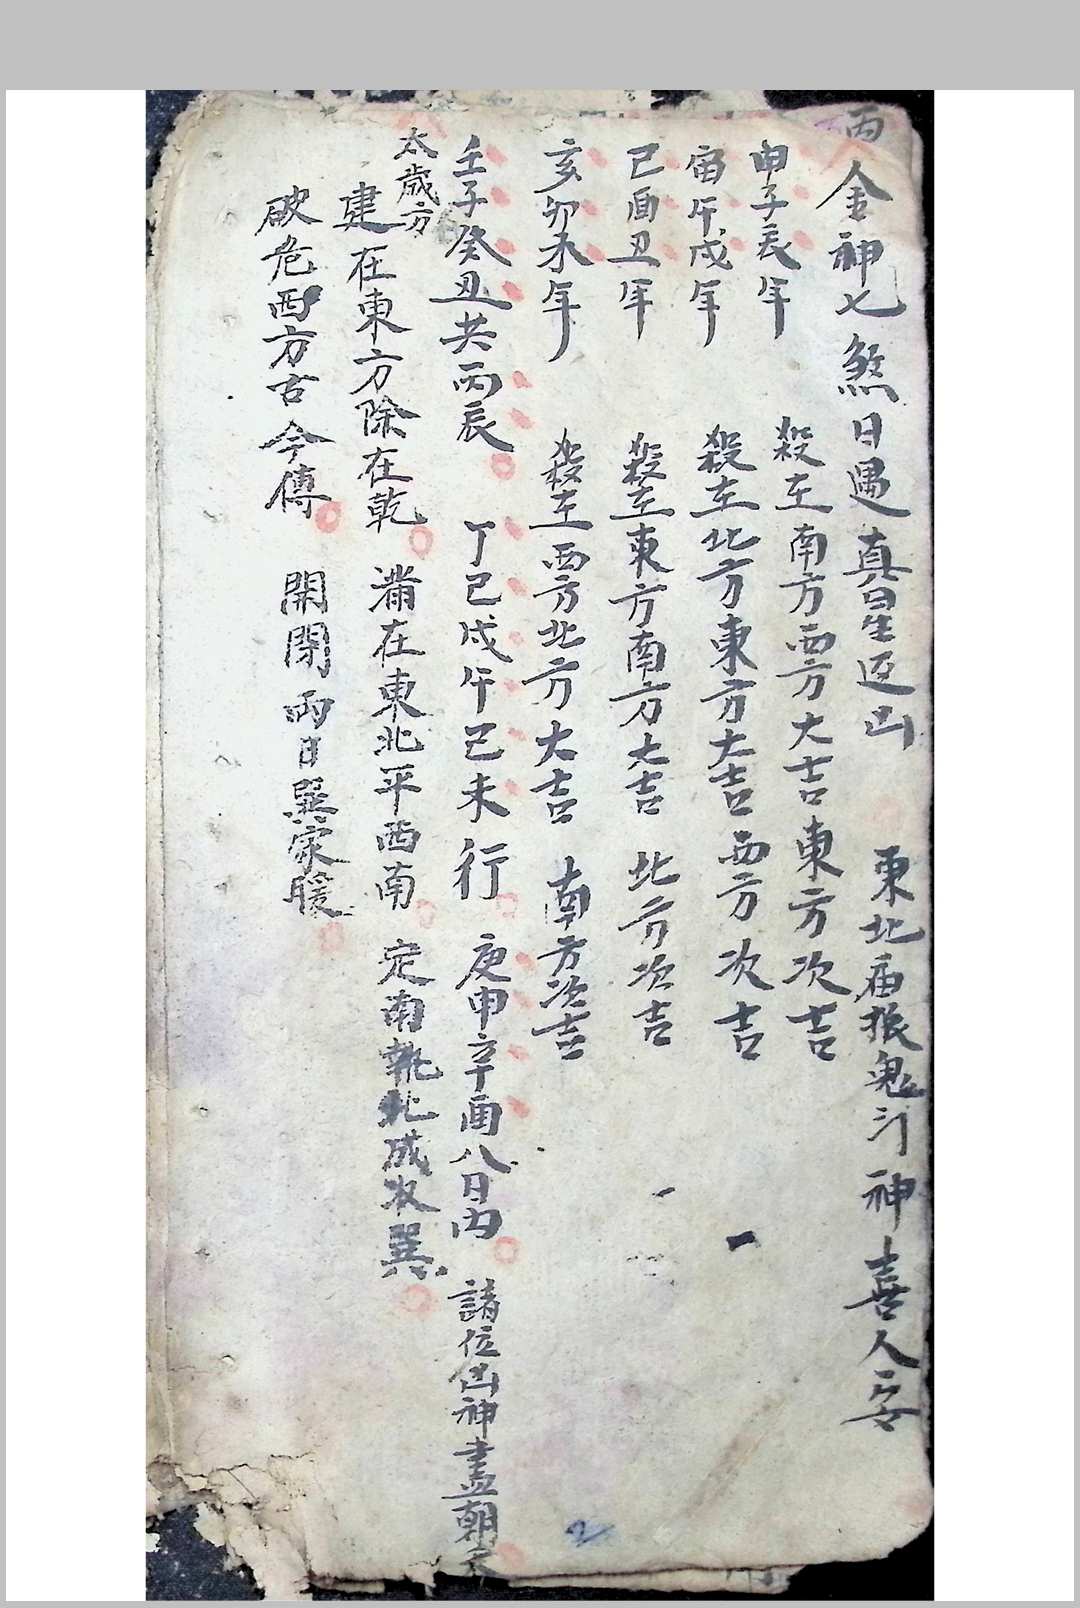 丙金神七煞日遇真星返山　東北廂振鬼汀神喜人安
申子辰年　殺在南方西方大吉東方次吉
寅午戌年　殺在北方東方大吉西方次吉
巳酉丑年　殺在東方南方大吉　北方次吉
亥卯未年　殺在西方北方大吉　南方次吉
壬子癸丑共丙辰　丁巳戊午己未行　庚申辛酉八日内　諸位凶神盡朝天
太歲方
建在東方除在乾　滿在東北平西南　定南執北成收巽
破危西方古今傳　開閉兩日巽家暖
2